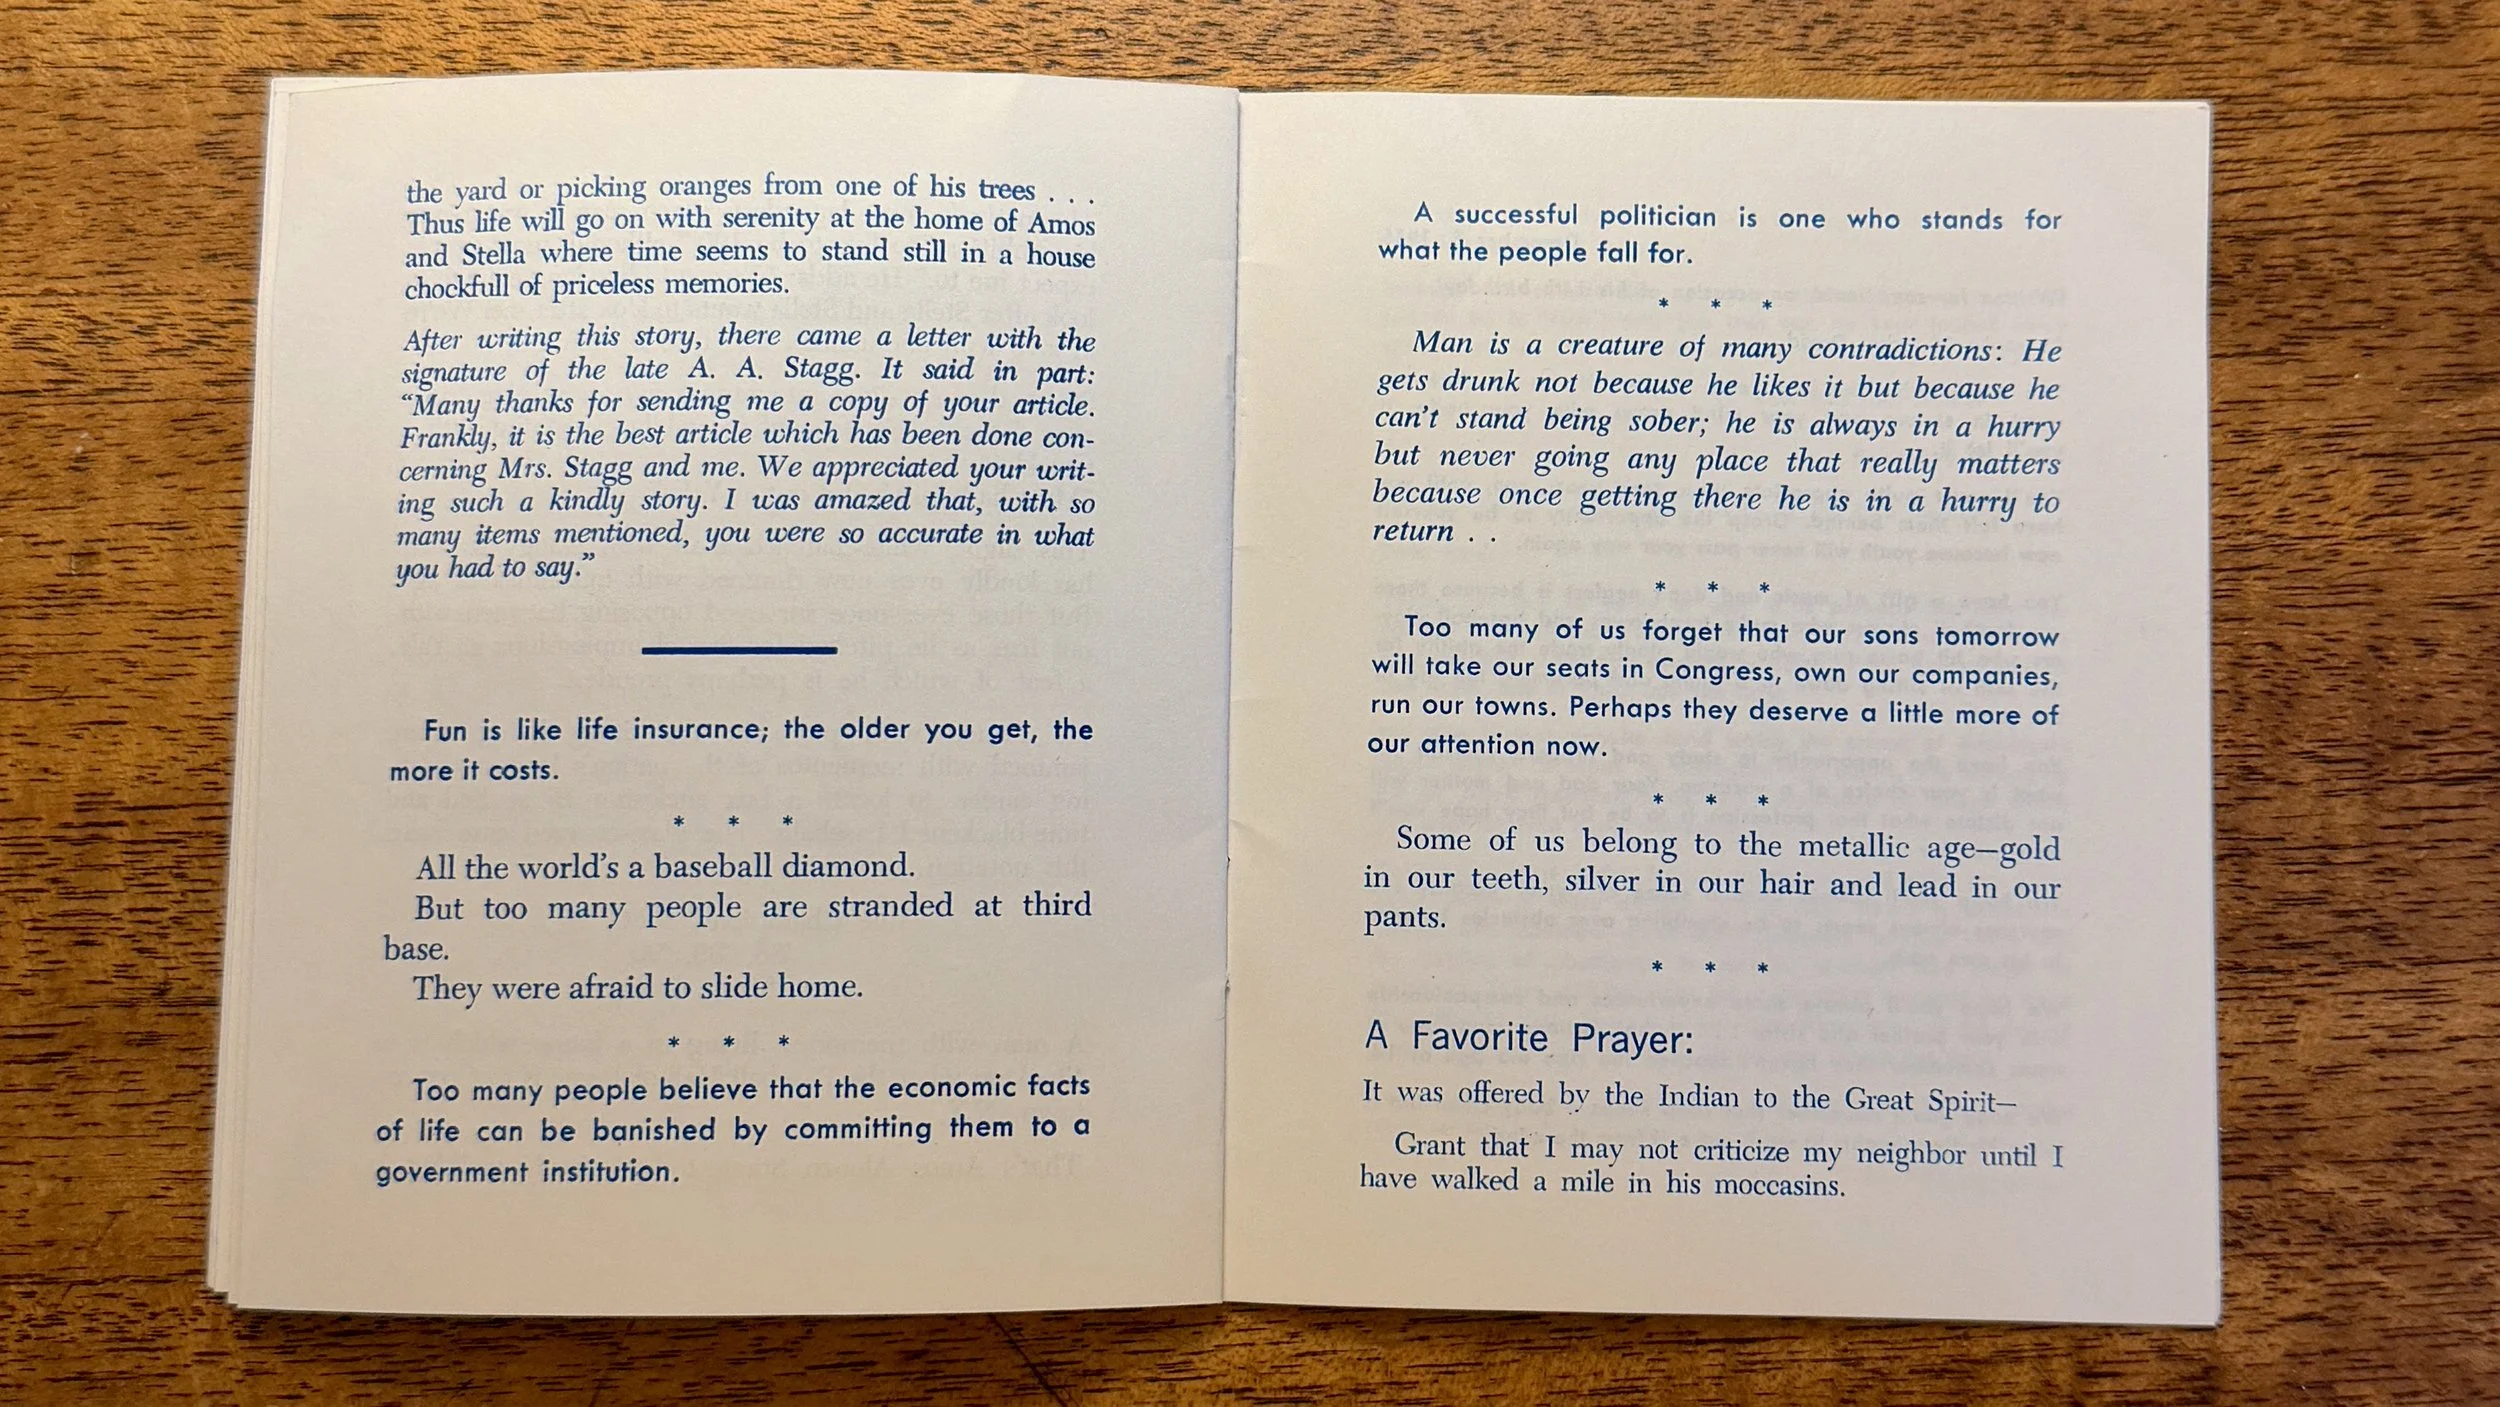 the yard or picking oranges from one of his trees . . .
Thus life will go on with serenity at the home of Amos
and Stella where time seems to stand still in a house
chockfull of priceless memories.
After writing this story, there came a letter with the
signature of the late A. A. Stagg. It said in part:
“Many thanks for sending me a copy of your article.
Frankly, it is the best article which has been done con-
cerning Mrs. Stagg and me. We appreciated your writ-
ing such a kindly story. I was amazed that, with so
many items mentioned, you were so accurate in what
you had to say.”
Fun is like life insurance; the older you get, the
more it costs.
* * *
All the world’s a baseball diamond.
But too many people are stranded at third
base.
They were afraid to slide home.
* * *
Too many people believe that the economic facts
of life can be banished by committing them to a
government institution.
A successful politician is one who stands for
what the people fall for.
* * *
Man is a creature of many contradictions: He
gets drunk not because he likes it but because he
can’t stand being sober; he is always in a hurry
but never going any place that really matters
because once getting there he is in a hurry to
return . .
* * *
Too many of us forget that our sons tomorrow
will take our seats in Congress, own our companies,
run our towns. Perhaps they deserve a little more of
our attention now.
* * *
Some of us belong to the metallic age—gold
in our teeth, silver in our hair and lead in our
pants.
* * *
A Favorite Prayer:
It was offered by the Indian to the Great Spirit—
Grant that I may not criticize my neighbor until I
have walked a mile in his moccasins.